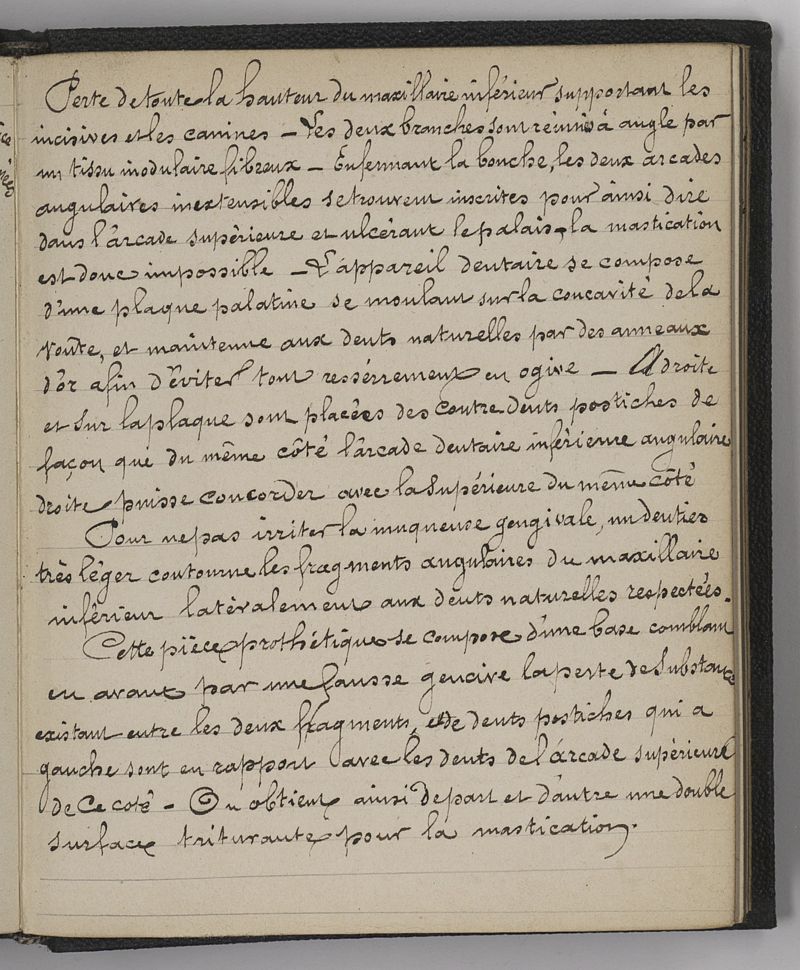 Perte de toute la hauteur du maxillaire inférieur supportant les
incisives et les canines – Les deux branches sont réunies à angle par
un tissu inodulaire fibreux – Enfermant la bouche, les deux arcades
angulaires inextensibles se trouvent inscrites pour ainsi dire
dans l'arcade supérieure et ulcérant le palais, la mastication
est donc impossible – L'appareil dentaire se compose
d'une plaque palatine se moulant sur la concavité de la
voûte, et maintenue aux dents naturelles par des anneaux
d'or afin d'éviter tout ressérrement en ogive – A droite
et sur la plaque sont placées des contre dents postiches de
façon que du même côté l'arcade dentaire inférieure angulaire
droite puisse concorder avec la supérieure du même côté
Pour ne pas irriter la muqueuse gengivale, un dentier
très léger contourne les fragments angulaires du maxillaire
inférieur latéralement aux dents naturelles respectées.
Cette pièce prothétique se compose d'une base comblant
en avant par une fausse gencive la perte de substance
existant entre les deux fragments, et de dents postiches qui a
gauche sont en rapport avec les dents de l'arcade supérieure
de ce coté – On obtient ainsi de part et d'autre une double
surface triturante pour la mastication.